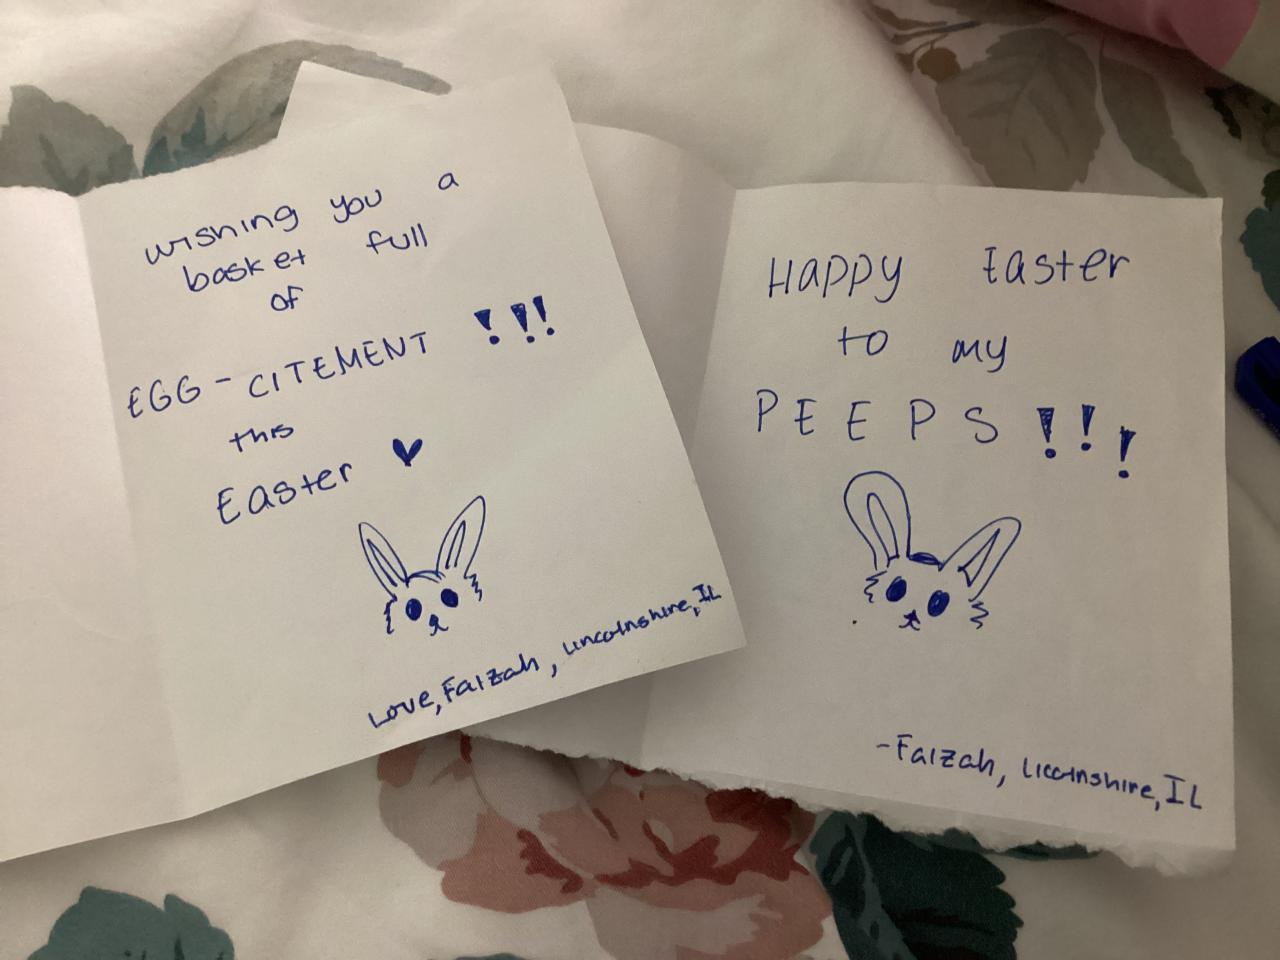 wishing you a
basket full
of
EGG-CITEMENT !!!
this
Easter ♥
Love, Faizah, Lincolnshire, IL
Happy Easter
to my
PEEPS!!!
-Faizah, Licolnshire, IL